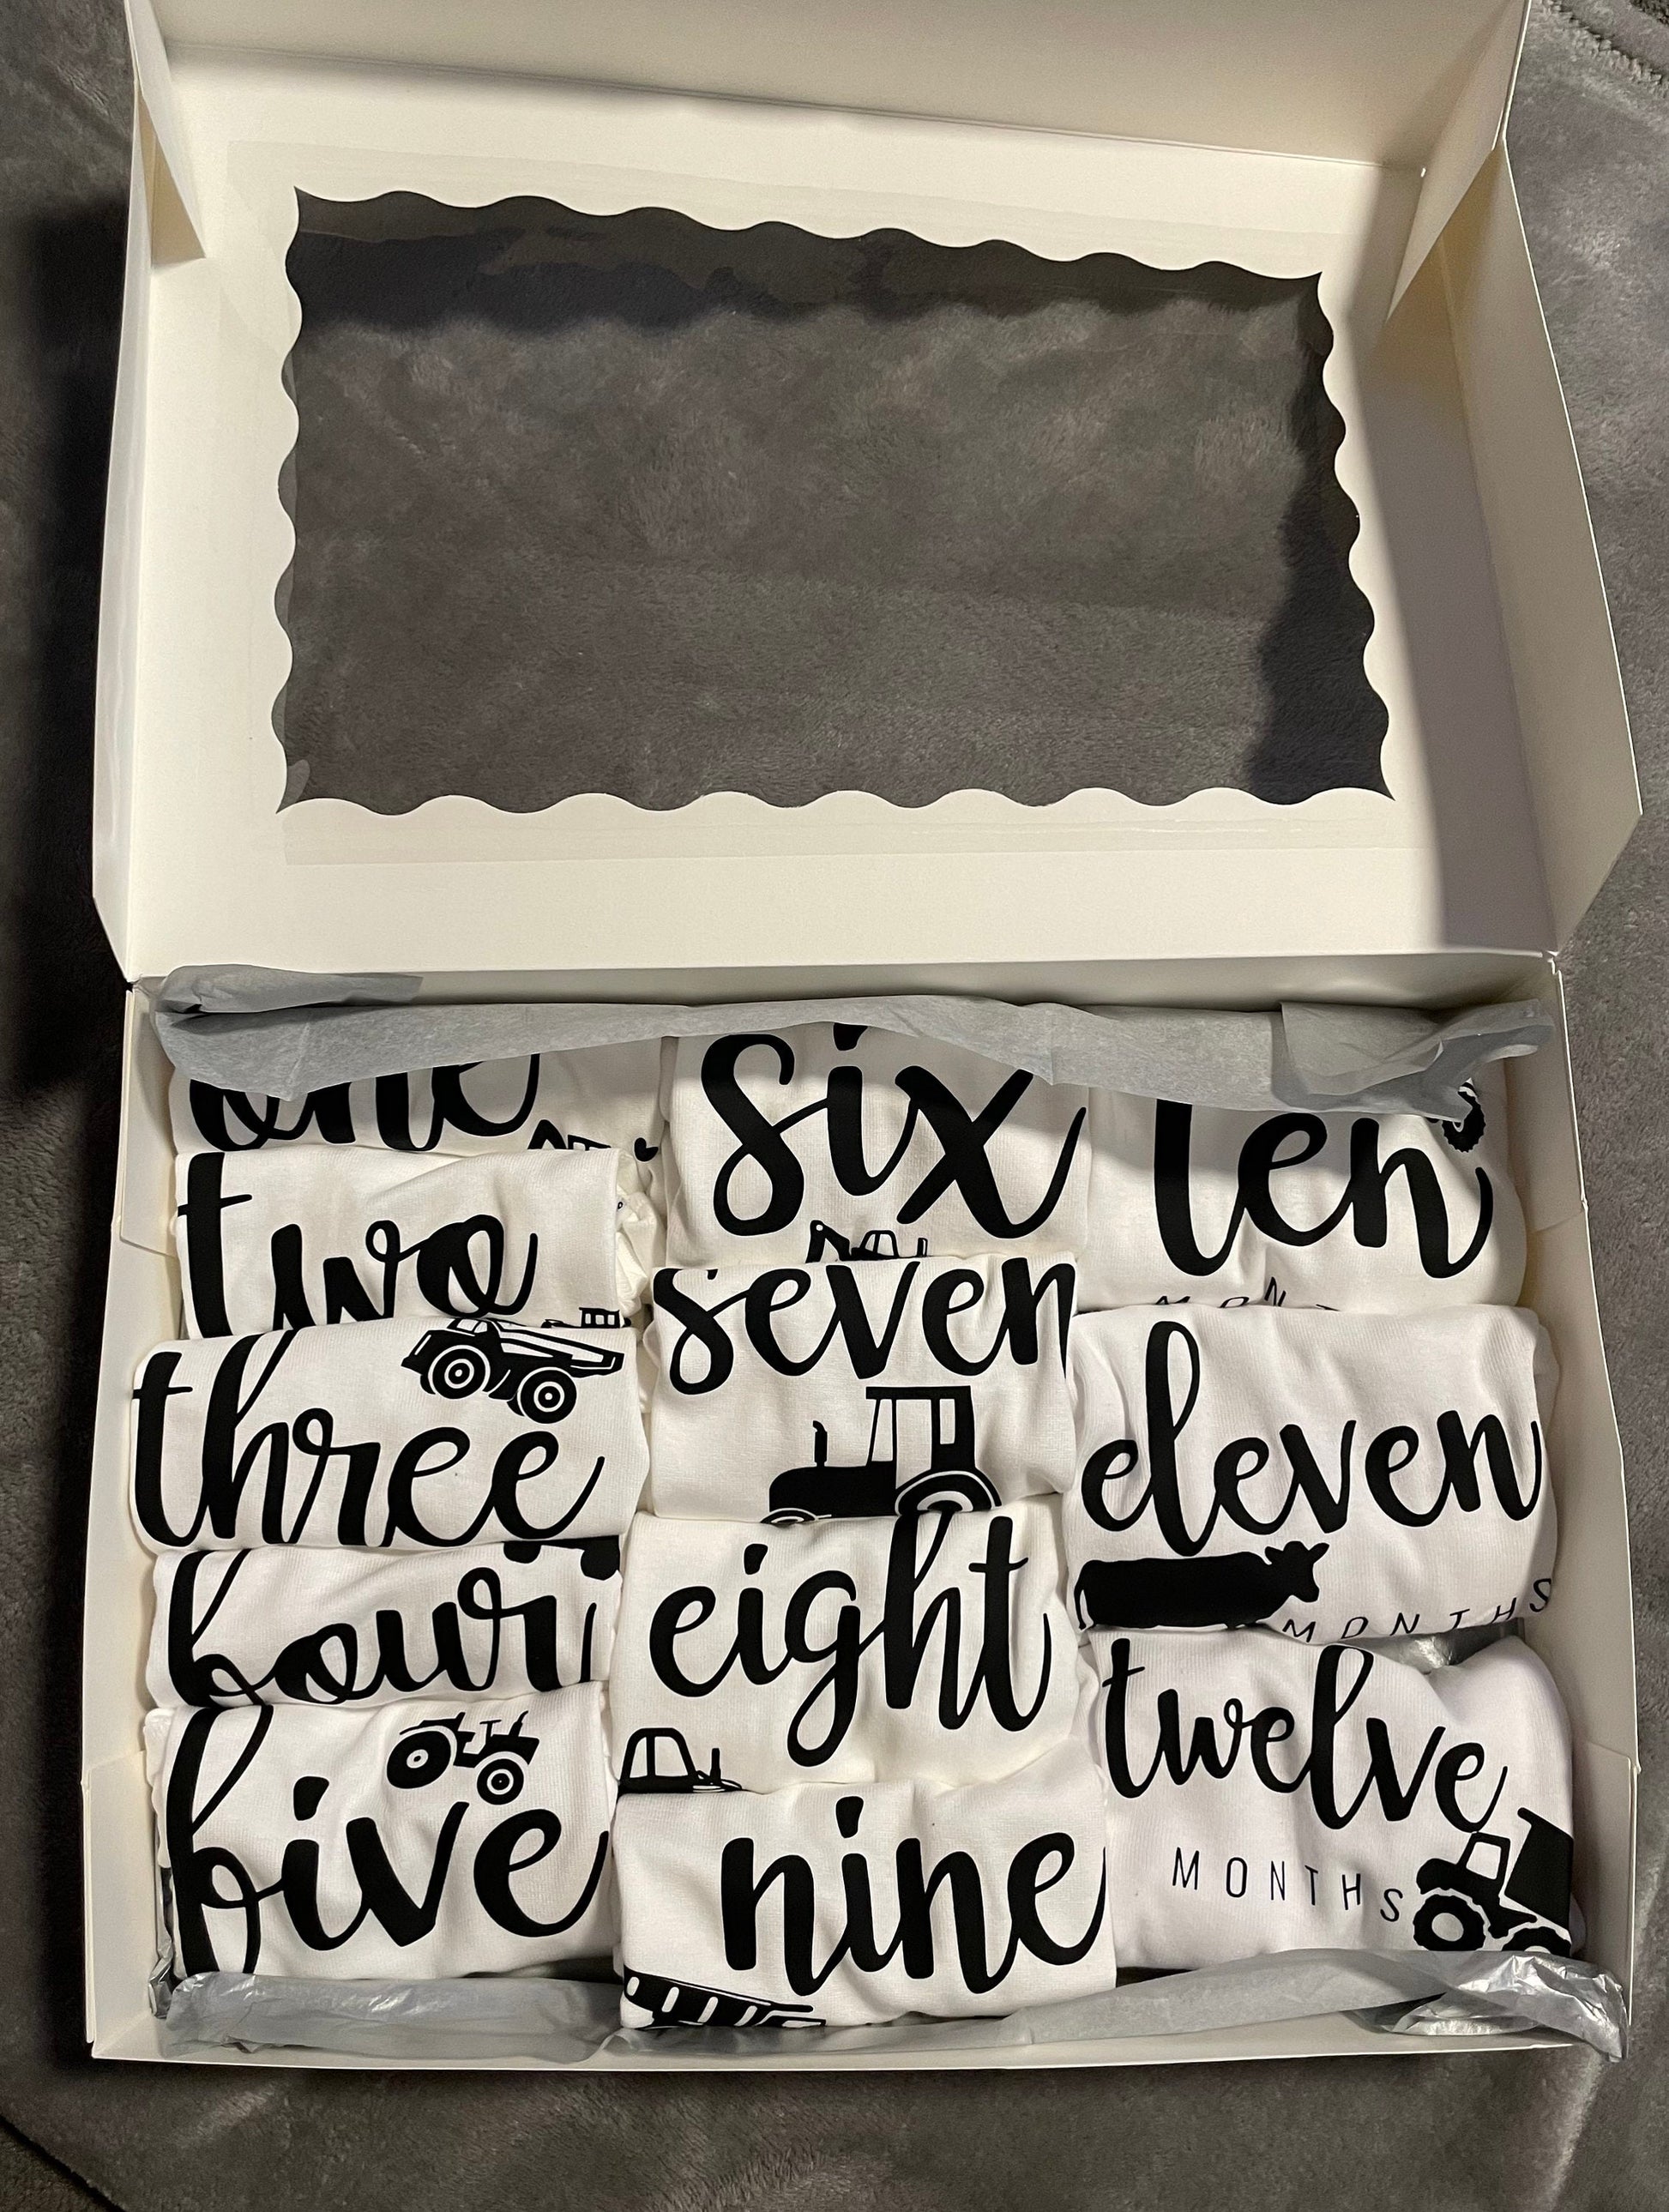 one
two
three
four
five
six
seven
eight
nine
ten
eleven
MONTHS
twelve
MONTHS